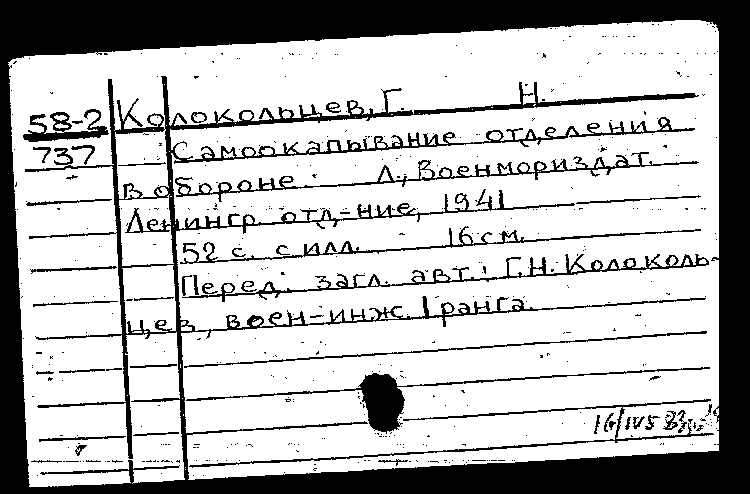 58-2 Колокольцев, Г. Н.
737 Самоокапывание отделения
в обороне. Л., Военмориздат.
Ленингр. отд-ние, 1941
52 с. с илл. 16 см.
Перед. загл. авт.: Г.Н. Колоколь-
цев, воен-инж. I ранга.